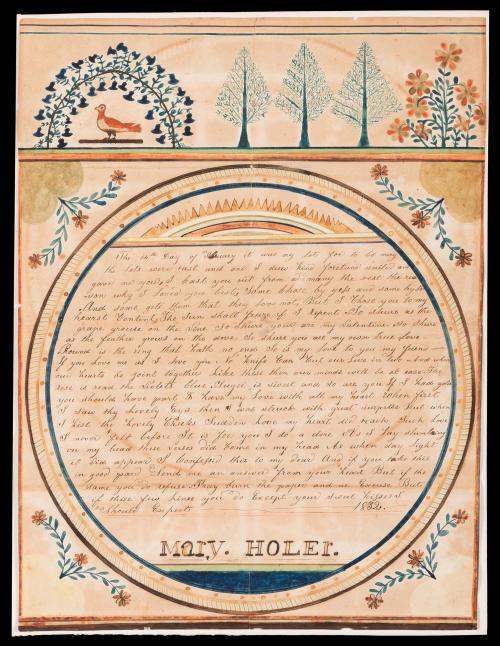 The 14th Day of February it was my lot for to be merry
the lots were cast and one I drew kind foretune
gave me you I cast you out from a-many the rest the rea
son why I loves you best Some Chose by
And some gets them that they love not, But I Chose you to my
hearst Content, The sun shall freeze if I repent As shure as the
grape grouse on the Vine So shure your are my Valentine As Shure
as the feather grows on the dove So Shure you are my own true love
Round is the ring that hath no end So is my love to you my friend
If you love me as I love you No Knife Can Cut our love in two And when
our hearts do goint together Like these then our minds will be at ease The
rose is read the Violets blue Suger is sweet and so are you If I had gold
you should have part I have my Love with all my heart When first
I saw thy lovely Eys then I was struck with great surprise But when
I kist the lovely Cheeks Sudden love my heart did reach Such Love
I never felt before It is for you I do adore As I lay
on my bead these verses did Came in my head As when day light
it did appear I Confessed this to my dear And if you take this
in good pard Send me an answer from your heart But if the
same you do refuse Pray burn the paper and me Excuse But
if these few lines you do Except your sweet Kisses I
Should Expect 1832.
MARY. HOLER.